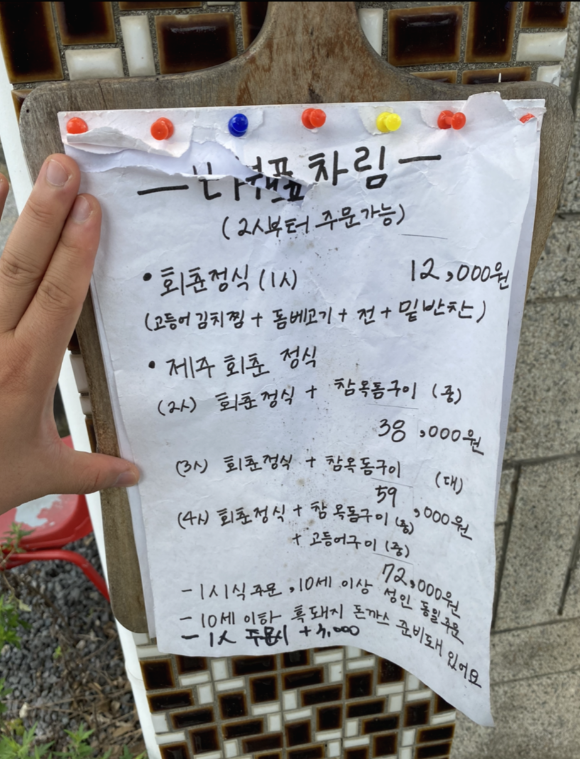 차림
(2人부터 주문가능)
• 회춘정식 (1人) 12,000원
(고등어 김치찜 + 돔베고기 + 전 + 밑반찬)
• 제주 회춘 정식
(2人) 회춘정식 + 참옥돔구이 (중)
38,000원
(3人) 회춘정식 + 참옥돔구이 (대)
59,000원
(4人) 회춘정식 + 참옥돔구이 (중)
+ 고등어구이 (중)
72,000원
- 1人1식 주문, 10세 이상 성인 동일 주문
- 10세 이하 흑돼지 돈까스 준비돼 있어요
- 1人 주문시 +3,000